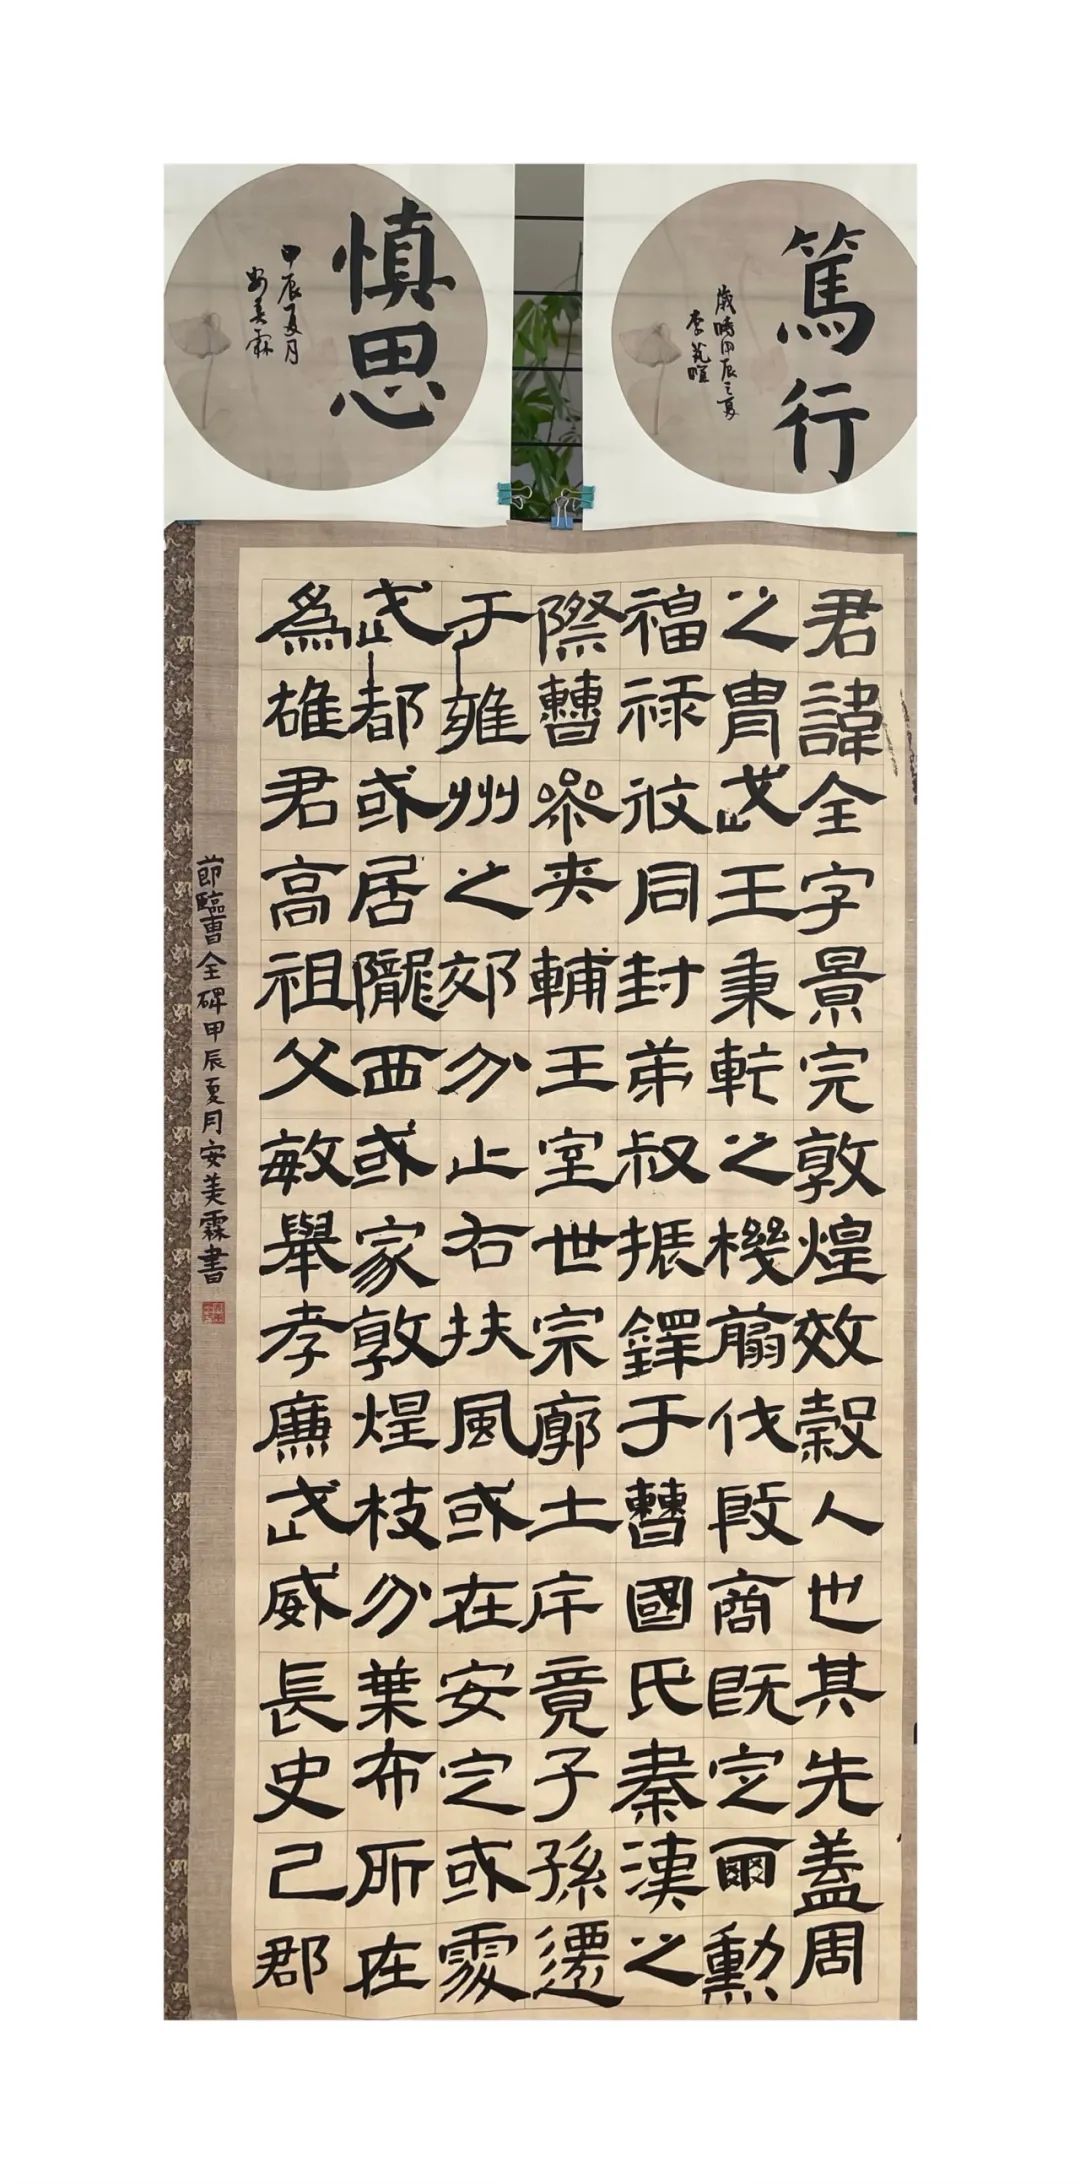 篤行
歲時甲辰之夏
慎思
甲辰夏月
安美霖
君諱全字景完敦煌效穀人也其先蓋周
之胄武王秉乾之機翦伐殷商既定爾勳
福祿攸同封弟叔振鐸于曹國氏秦漢之
際曹參夾輔王室世宗廓土斥竟子孫遷
于雍州之郊分止右扶風或在安定或處
武都或居隴西或家敦煌枝分葉布所在
爲雄君高祖父敏舉孝廉武威長史巳郡
節臨曹全碑甲辰夏月安美霖書